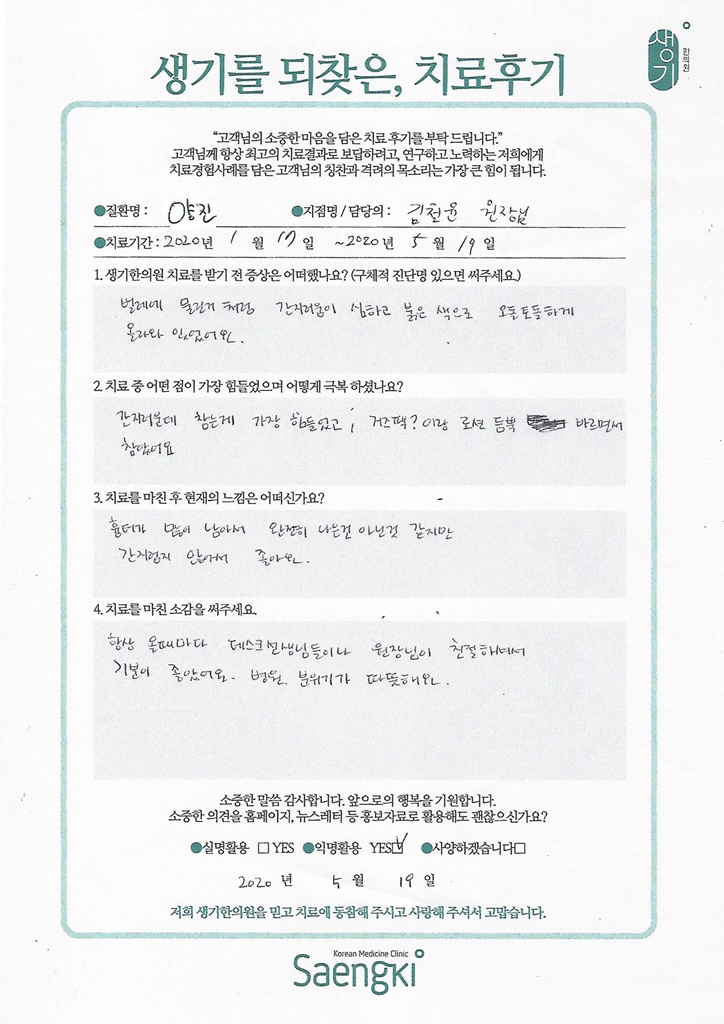 생기
한의원
생기를 되찾은, 치료후기
“고객님의 소중한 마음을 담은 치료 후기를 부탁 드립니다.”
고객님께 항상 최고의 치료결과로 보답하려고, 연구하고 노력하는 저희에게
치료경험사례를 담은 고객님의 칭찬과 격려의 목소리는 가장 큰 힘이 됩니다.
●질환명 : 양진 ●지점명 / 담당의 : 김철윤 원장님
●치료기간 : 2020년 1 월 17 일 ~2020 년 5 월 19 일
1. 생기한의원 치료를 받기 전 증상은 어떠했나요? (구체적 진단명 있으면 써주세요.)
벌레에 물린거 처럼 간지러움이 심하고 붉은 색으로 오돌토돌하게
올라와 있었어요.
2. 치료 중 어떤 점이 가장 힘들었으며 어떻게 극복 하셨나요?
간지러운데 참는게 가장 힘들었고; 거즈팩? 이랑 로션 듬뿍 바르면서
참았어요
3. 치료를 마친 후 현재의 느낌은 어떠신가요?
흉터가 많이 남아서 완전히 나은건 아닌것 같지만
간지럽지 않아서 좋아요.
4. 치료를 마친 소감을 써주세요.
항상 올때마다 데스크선생님들이나 원장님이 친절하셔서
기분이 좋았어요. 병원 분위기가 따뜻해요.
소중한 말씀 감사합니다. 앞으로의 행복을 기원합니다.
소중한 의견을 홈페이지, 뉴스레터 등 홍보자료로 활용해도 괜찮으신가요?
●실명활용 □ YES ●익명활용 YES☑ ●사양하겠습니다□
2020 년 5 월 19 일
저희 생기한의원을 믿고 치료에 동참해 주시고 사랑해 주셔서 고맙습니다.
Korean Medicine Clinic
Saengki